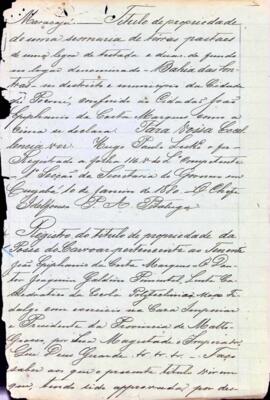 Maracajú — Titulo de propriedade
de uma sesmaria de terras pastaes
de uma legoa de testada e duas de fundo
no logar denominado — Bahia das
no destricto e municipio da Cidade
de concede ao Cidadão João
Epiphanio da Costa Marques como a
cima se declara. Para Vossa Excel
lencia ver. Hugo Paulo fez
Registrado a folha 116. v do Lº Competente
1ª Secção da Secretaria do Governo em
Cuyabá 10 de Janeiro de 1870. O Chefe
P. A.
Registro do titulo de propriedade da
posse do pertencente ao
João Epiphanio da Costa Marques. O Dou
tor Joaquim Galdino Pimentel, Lente Ca
thedratico da Escola Polytechnica, Moço Fi
dalgo com exercicio na Casa Imperial
Presidente da Provincia de Matto
Grosso, por Sua Magestade o Imperador
Que Deus Guarde. &. &. &. — Faço
saber aos que o presente titulo vir
em, tendo sido approvada por des